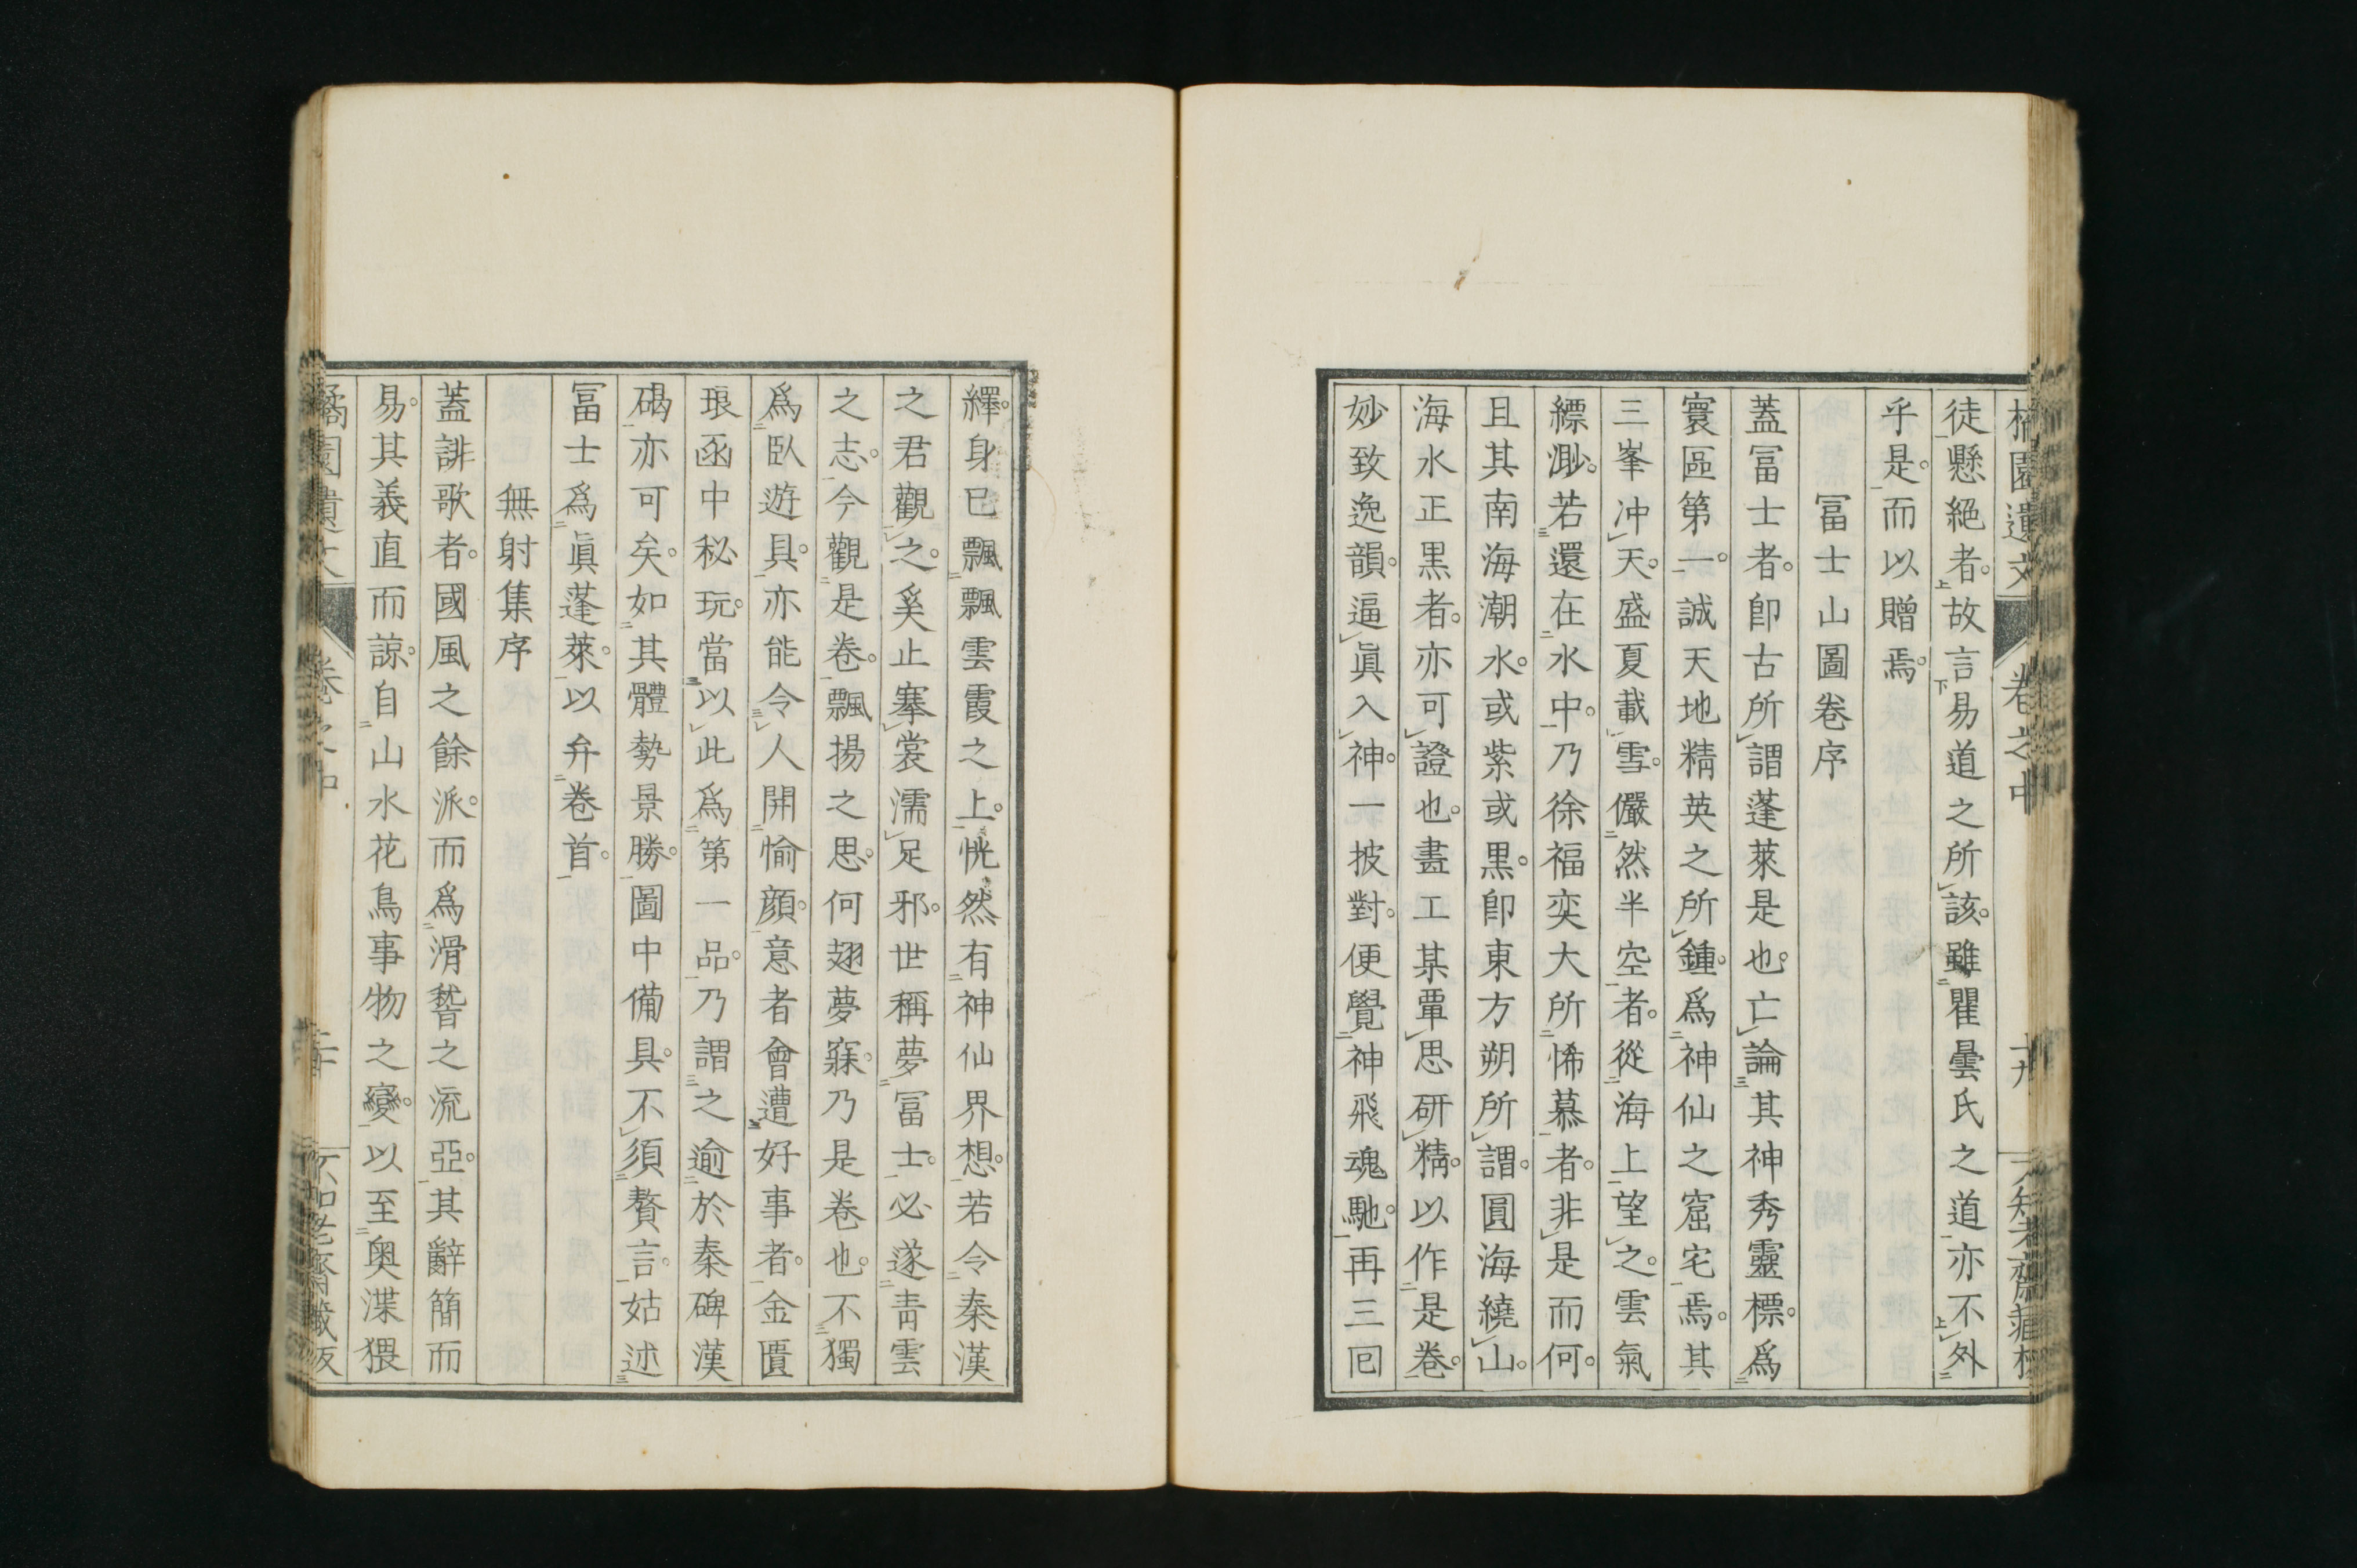 橘園遺文 卷之中 十九
徒懸絕者。故言易道之所該。雖瞿曇氏之道亦不外
乎是。而以贈焉。
冨士山圖卷序
蓋冨士者。卽古所謂蓬萊是也。亡論其神秀靈標。爲
寰區第一。誠天地精英之所鍾。爲神仙之窟宅焉。其
三峯冲天。盛夏載雪。儼然半空者。從海上望之。雲氣
縹渺。若還在水中。乃徐福奕大所悕慕者。非是而何。
且其南海潮水。或紫或黒。卽東方朔所謂。圓海繞山。
海水正黒者。亦可證也。畫工某覃思研精。以作是卷。
妙致逸韻。逼眞入神。一披對。便覺神飛魂馳。再三囘
繹。身已飄飄雲霞之上。恍然有神仙界想。若令秦漢
之君觀之。奚止搴裳濡足邪。世稱夢冨士。必遂靑雲
之志。今觀是卷。飄揚之思。何翅夢寐。乃是卷也。不獨
爲臥遊具。亦能令人開愉顔。意者會遭好事者。金匱
琅函中秘玩。當以此爲第一品。乃謂之逾於秦碑漢
碣亦可矣。如其體勢景勝。圖中備具。不須贅言。姑述
冨士爲眞蓬萊。以弁卷首。
無射集序
蓋誹歌者。國風之餘派。而爲滑稽之流亞。其辭簡而
易。其義直而諒。自山水花鳥事物之變。以至奥渫猥
橘園遺文 卷之中 二十 不知老齋藏板